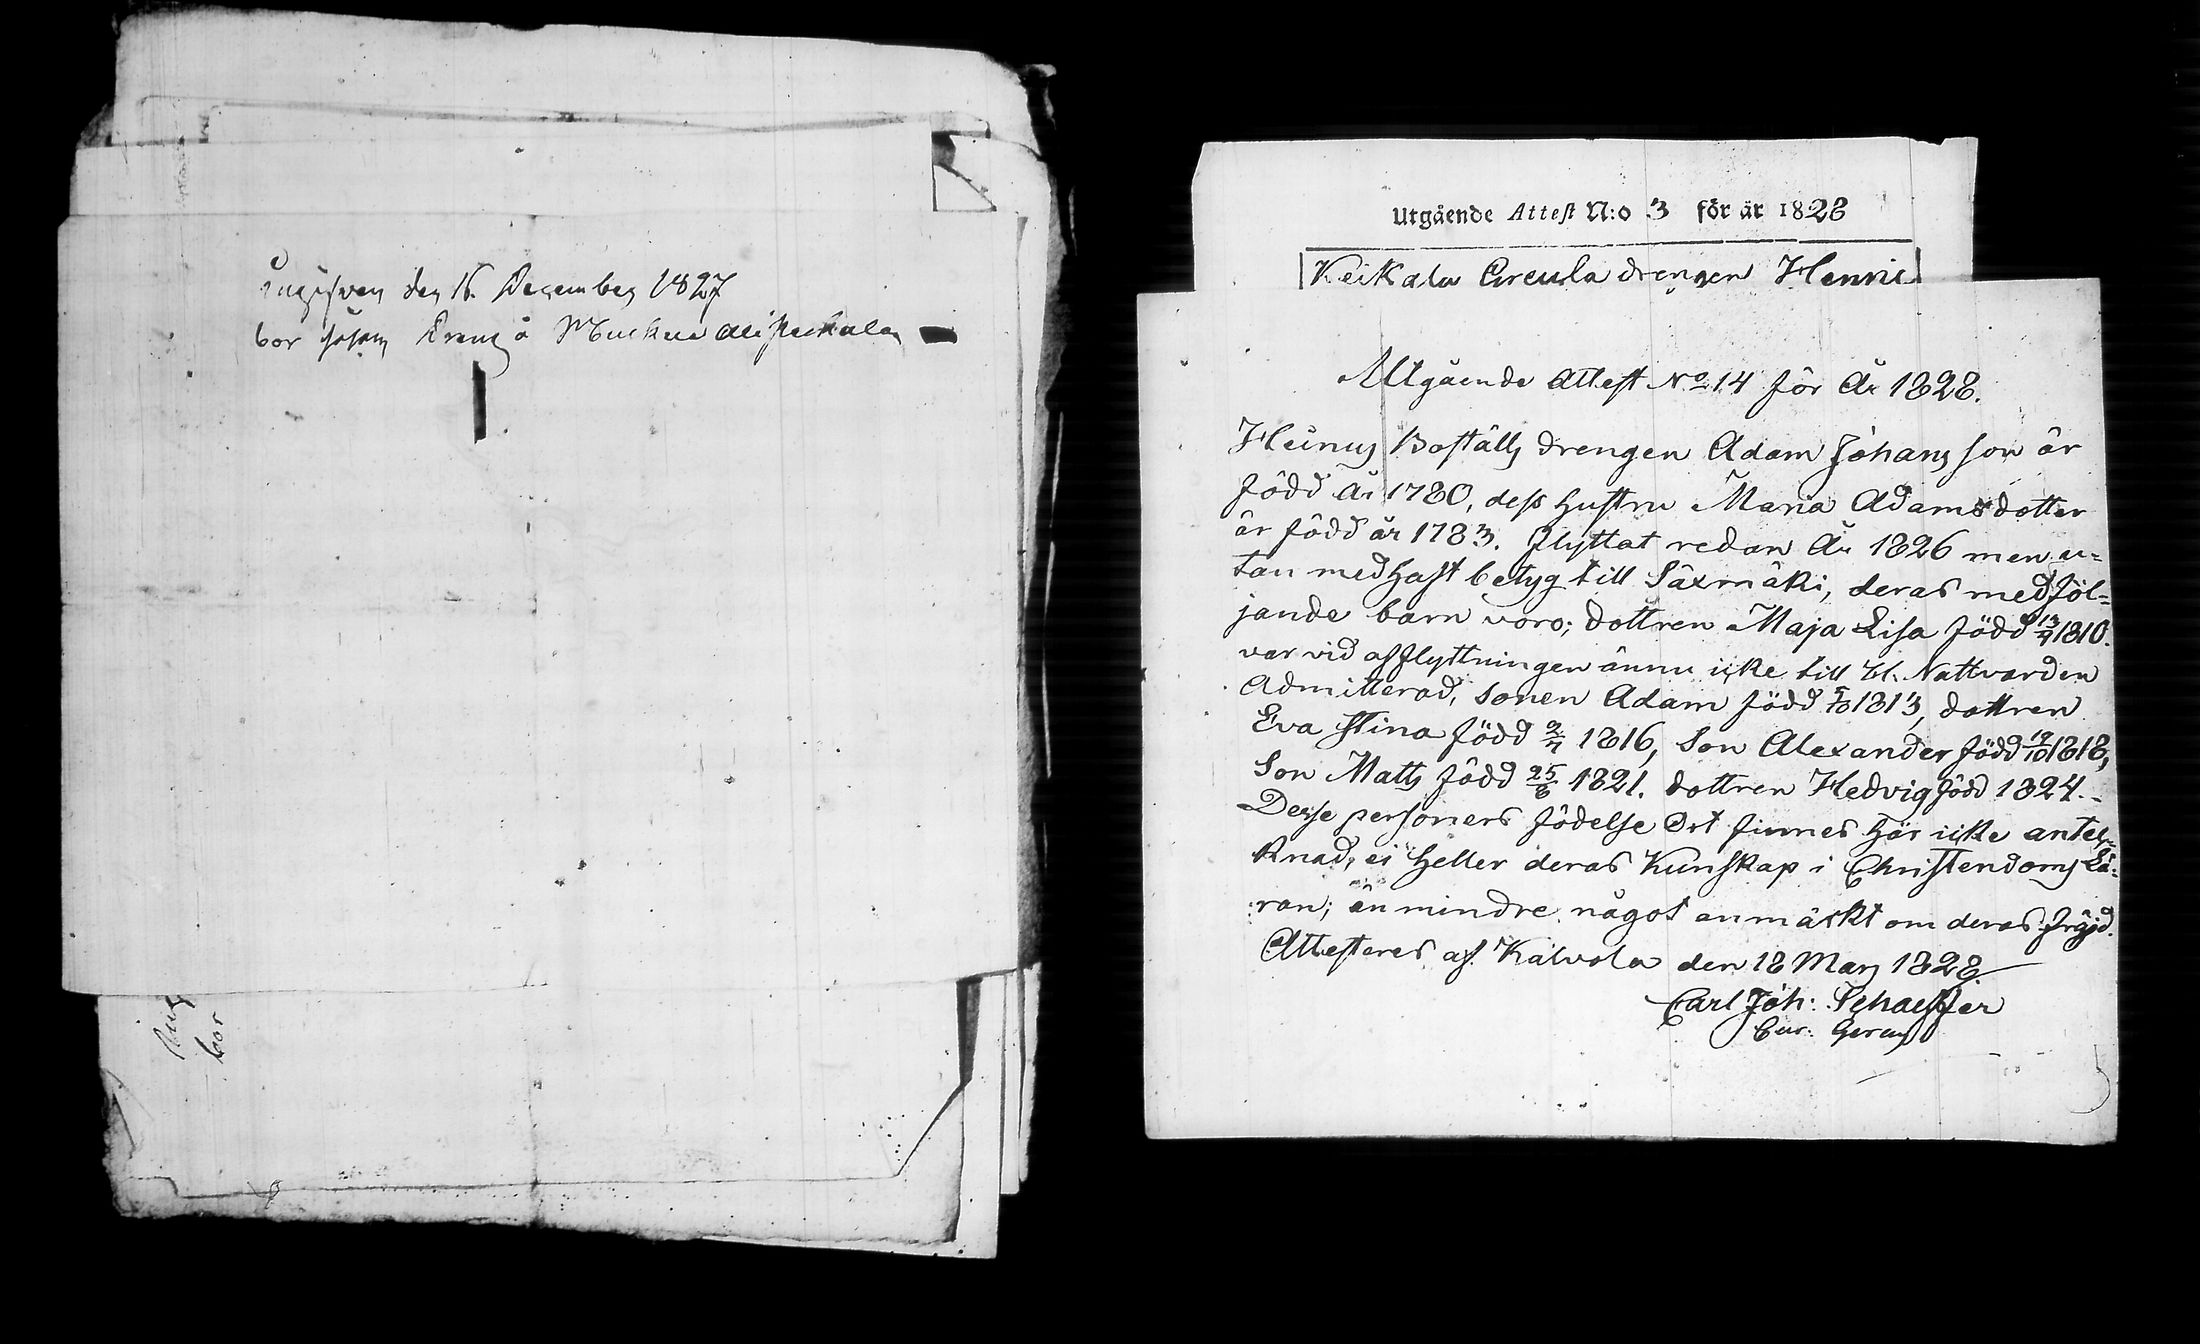 ingifven den 16 December 1827
bor såsom Dreng å
bor
Utgående Attest N:o 3 för år 1828
Keikala Ercula drengen Henric
Utgående Attest No 14 för År 1828.
Heinus Boställs drengen Adam Johans son är
född År 1780, dess hustru Maria Adamsdotter
är född år 1783. flyttat redan År 1826 men u-
tan medhaft betyg till Säxmäki, deras medföl-
jande barn voro; dottren Maja Lisa född 13/9 1810.
var vid afflyttningen ännu icke till H. Nattvarden
Admitterad, sonen Adam född 5/10 1813, dottren
Eva Stina född 2/7 1816, Son Alexander född 19/10 1818,
Son Matts född 25/8 1821. dottren Hedvig född 1824.-
Desse personers födelse Ort finnes här icke anteck-
knad, ei heller deras Kunskap i Christendoms Lä-
ran; än mindre något anmärkt om deras frägd.
Attesteres af Kalvola den 18 Mars 1828
Carl Joh: Schaeffer
Cur. Gerens